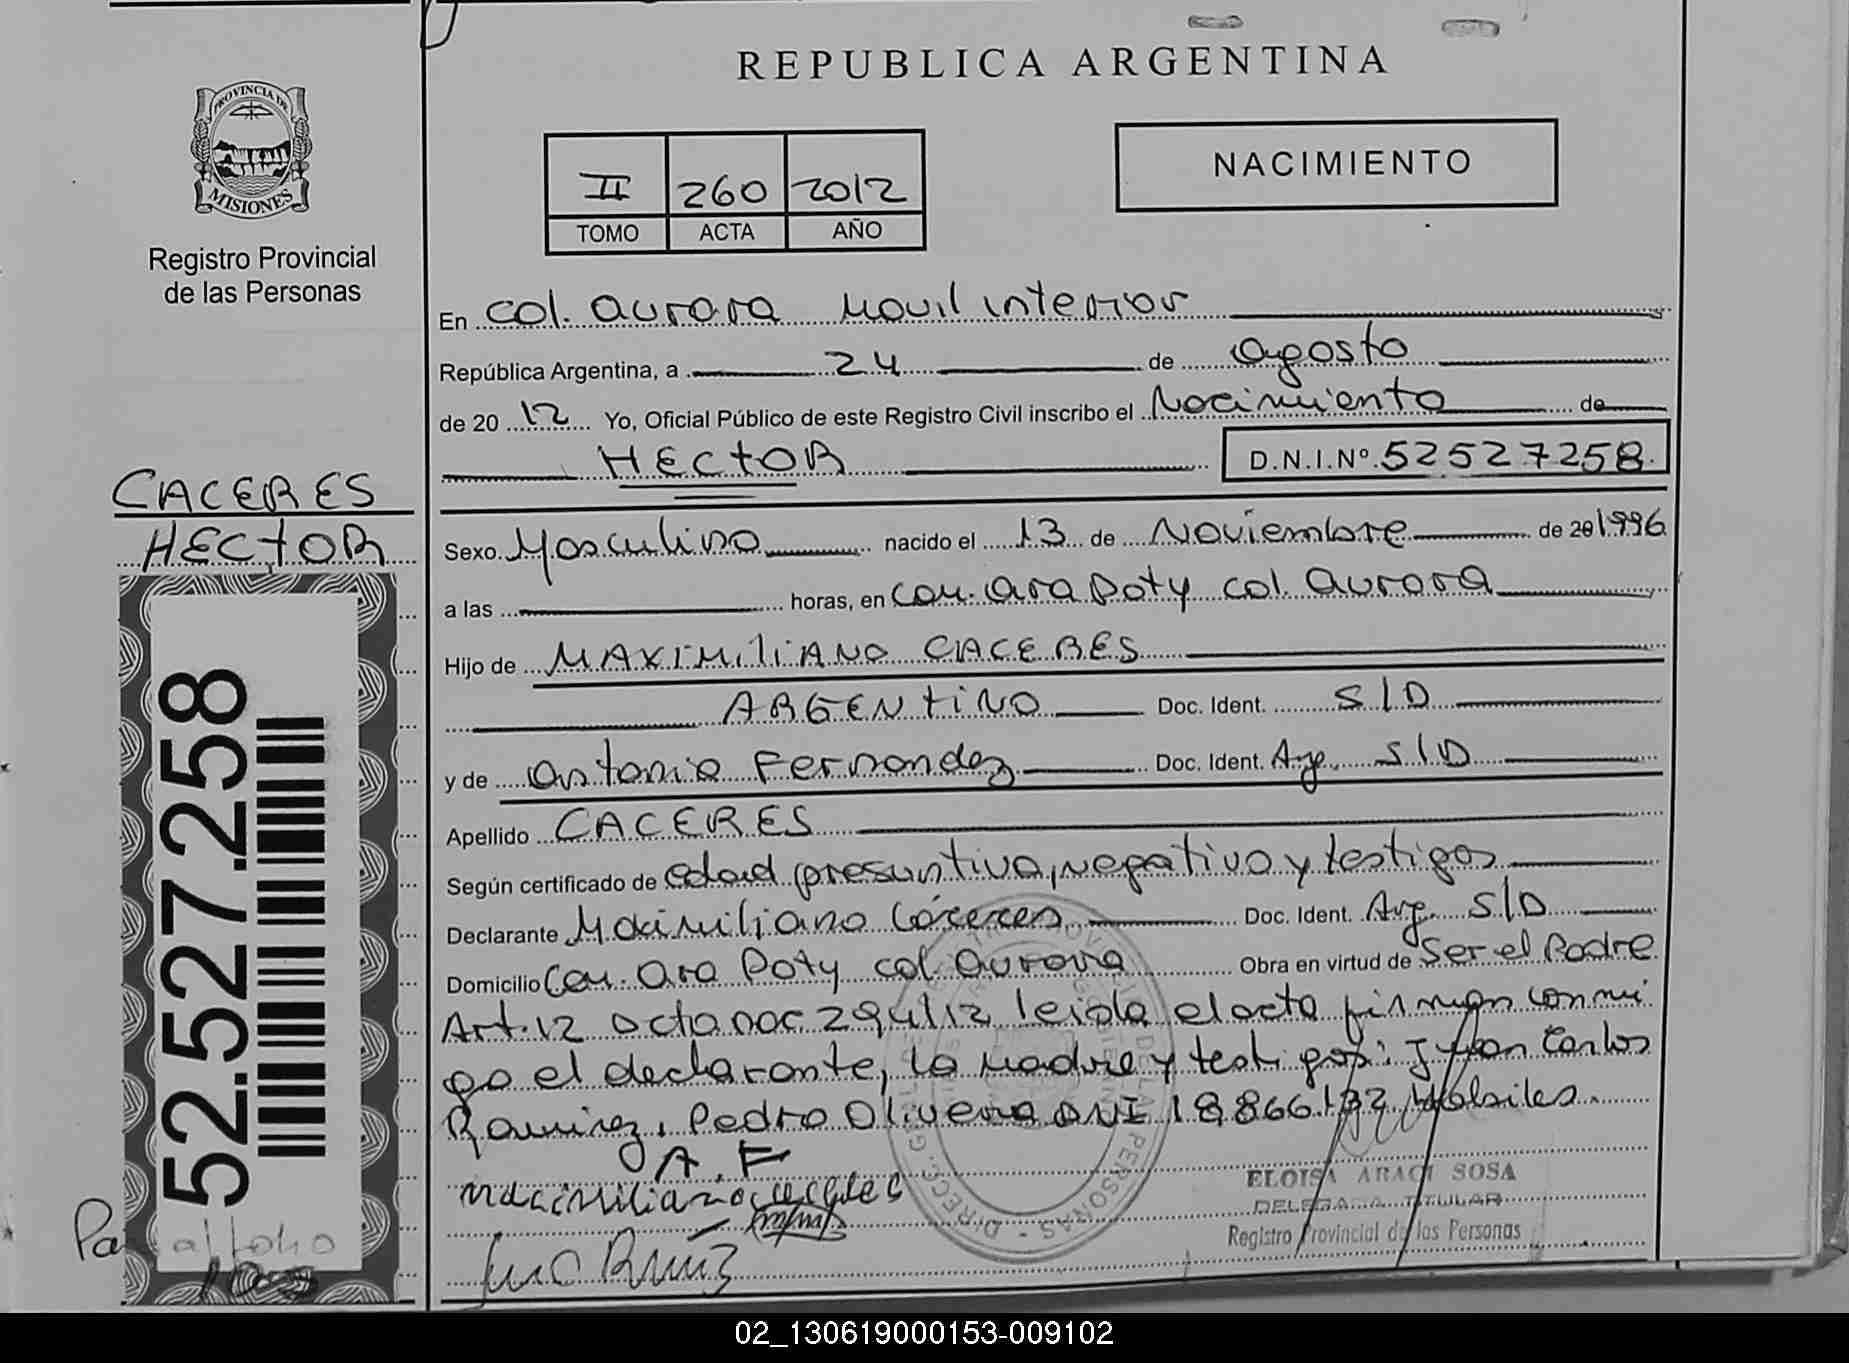 REPUBLICA ARGENTINA
PROVINCIA DE
MISIONES
Registro Provincial
de las Personas
II 260 2012
TOMO ACTA AÑO
NACIMIENTO
En Col. Aurora Movil interior
República Argentina, a 24 de agosto
de 2012 Yo, Oficial Público de este Registro Civil inscribo el Nacimiento de
HECTOR D.N.I.Nº 52527258
CACERES
HECTOR
52.527.258
Sexo Masculino nacido el 13 de Noviembre de 20 1996
a las horas, en Com. Ara Poty col. Aurora
Hijo de MAXIMILIANO CACERES
ARGENTINO Doc. Ident. S/D
y de Antonia Fernandez Doc. Ident. Arg. S/D
Apellido CACERES
Según certificado de edad presuntiva, negativo y testigos
Declarante Maximiliano Cáceres Doc. Ident. Arg. S/D
Domicilio Com. Ara Poty col. Aurora Obra en virtud de Ser el Padre
Art. 12 leida el acta firman conmi
go el declarante, la madre y testigos: Juan Carlos
Ramirez, Pedro Olivera DNI 18866132 Habiles
A.F
ELOISA ARACI SOSA
DELEGADA TITULAR
Registro Provincial de las Personas
02_130619000153-009102